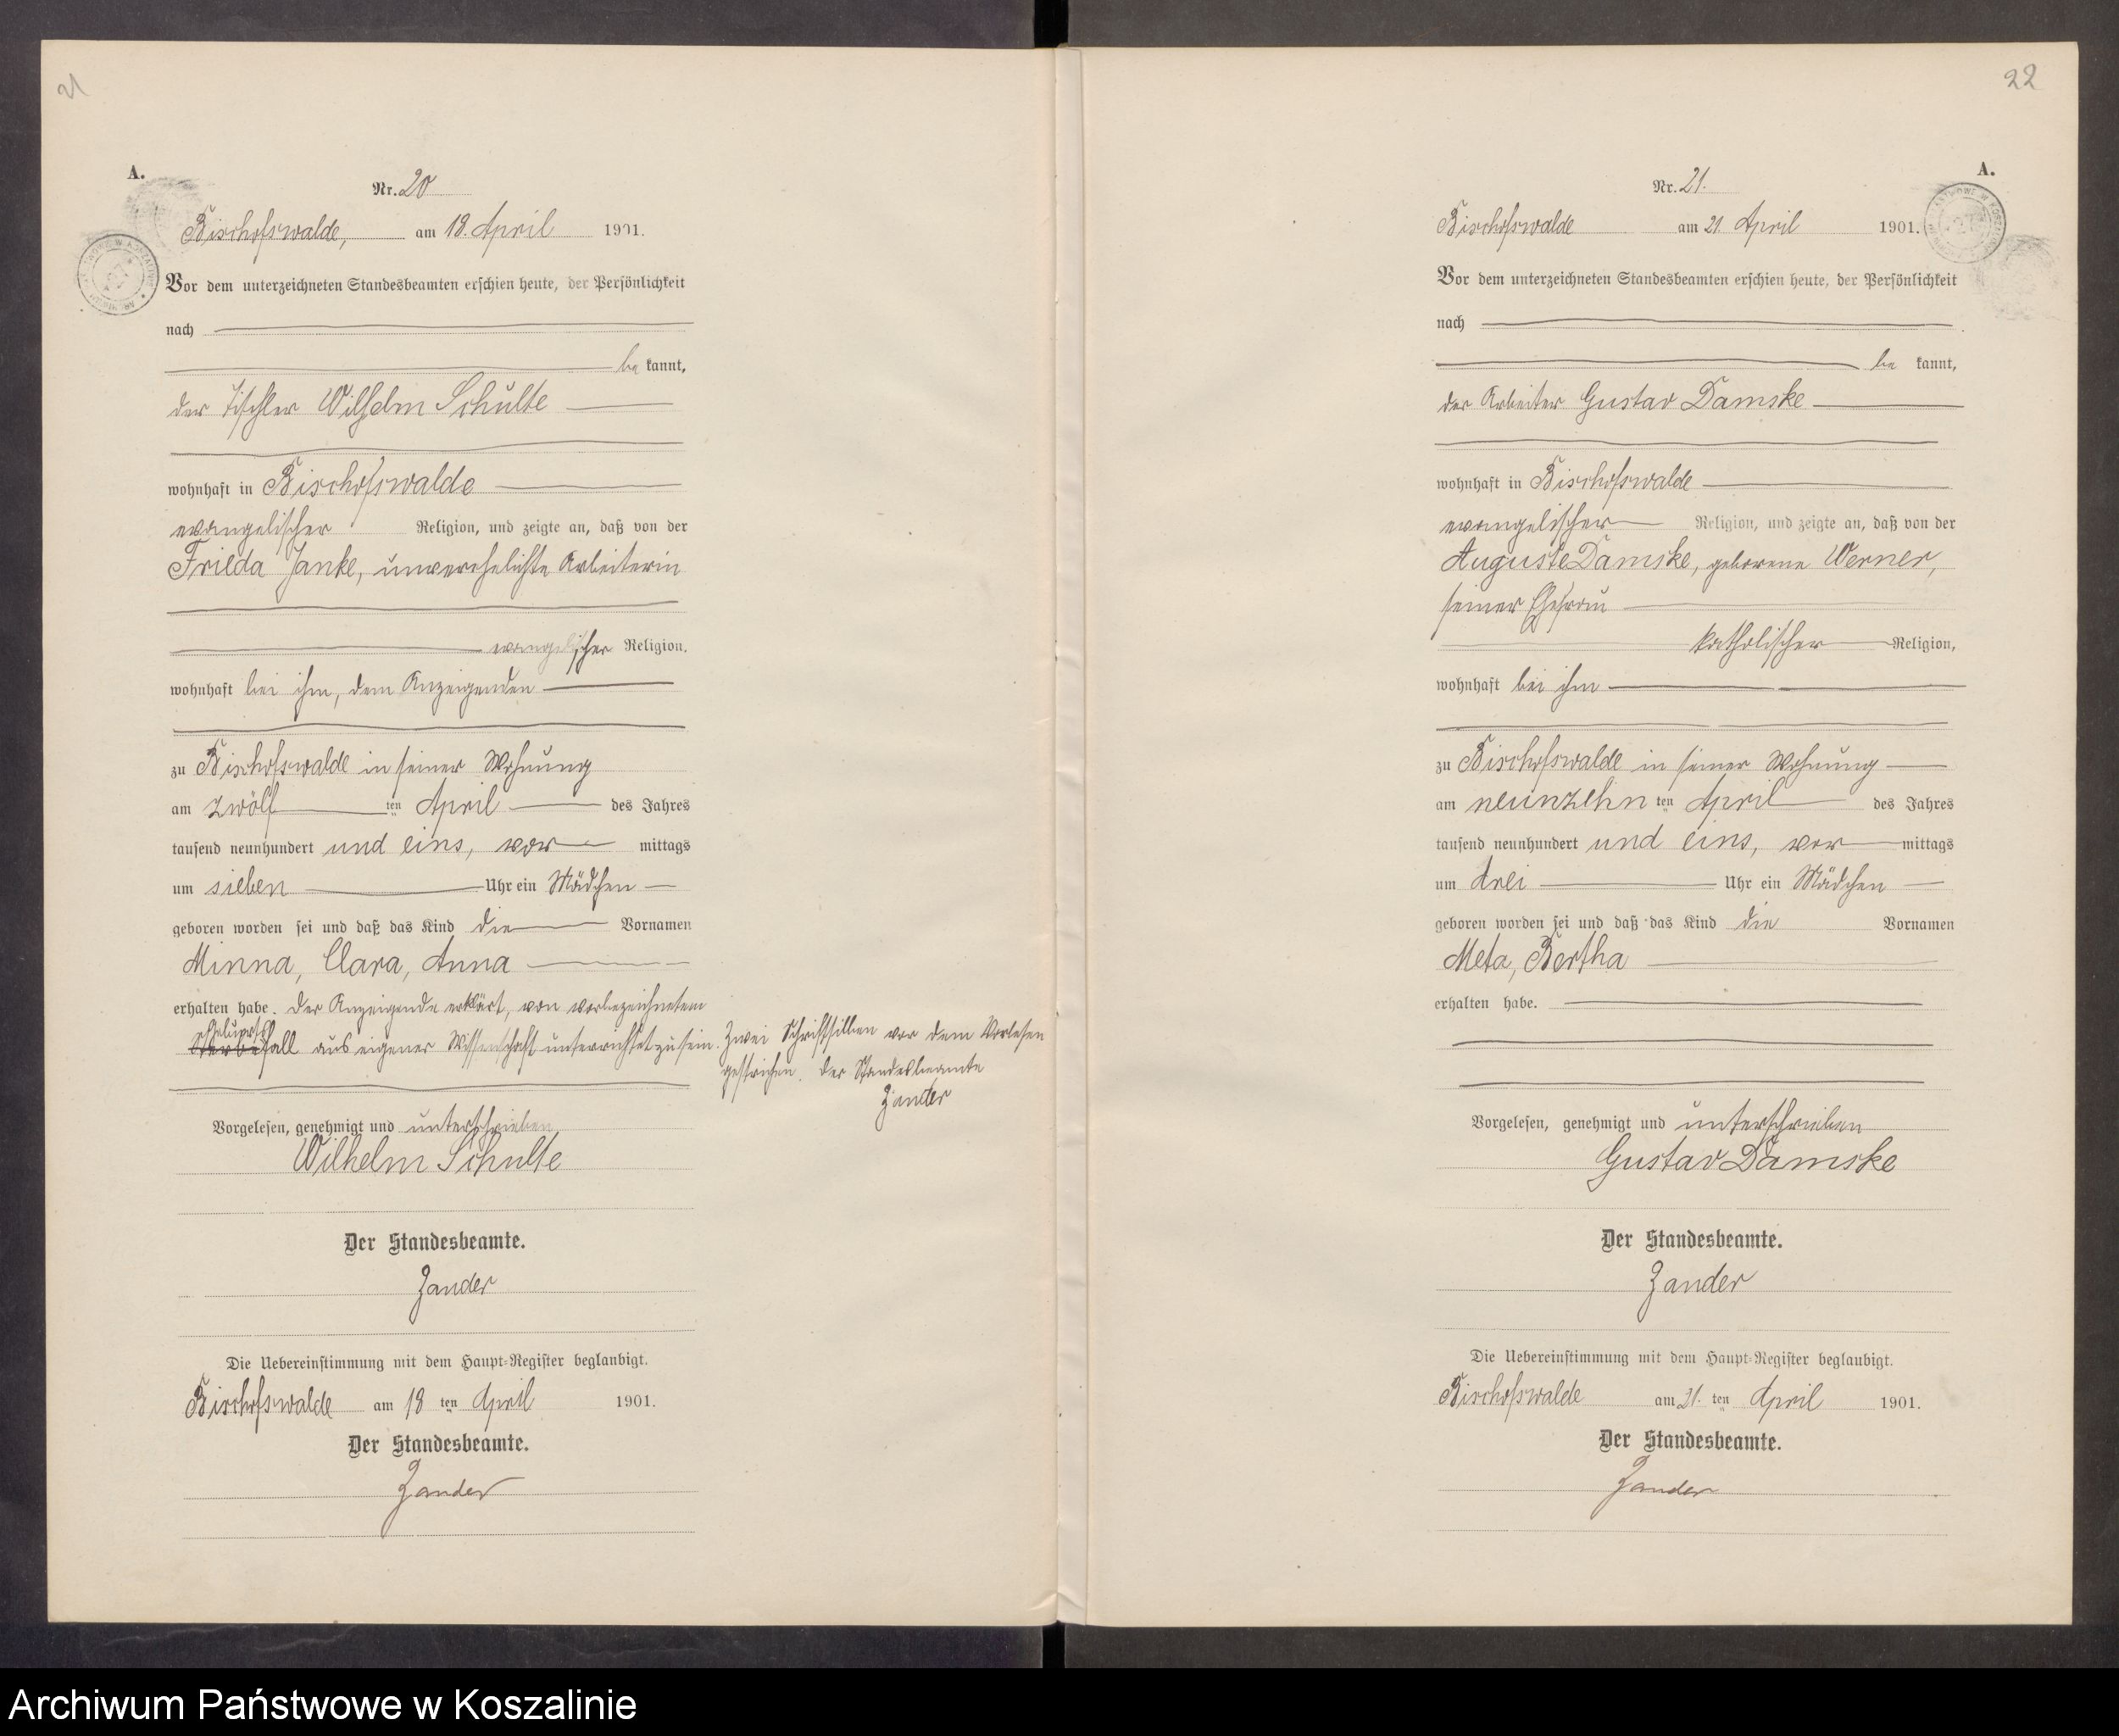 21
A.
Nr. 20
Bischofswalde, am 18. April 1901.
Vor dem unterzeichneten Standesbeamten erschien heute, der Persönlichkeit
nach
be kannt,
der Tischler Wilhelm Schulte
wohnhaft in Bischofswalde
evangelischer Religion, und zeigte an, daß von der
Frieda Janke, unverehelichte Arbeiterin
evangelischer Religion.
wohnhaft bei ihm, dem Anzeigenden
zu Bischofswalde in seiner Wohnung
am zwölf ten April des Jahres
tausend neunhundert und eins, vor mittags
um sieben Uhr ein Mädchen
geboren worden sei und daß das Kind die Vornamen
Minna, Clara, Anna
erhalten habe. Der Anzeigende erklärt, von vorbezeichnetem
Sterbefall aus eigener Wissenschaft unterrichtet zu sein.
Zwei Schriftsilben vor dem Vorlesen
gestrichen. Der Standesbeamte
Zander
Vorgelesen, genehmigt und unterschrieben
Wilhelm Schulte
Der Standesbeamte.
Zander
Die Uebereinstimmung mit dem Haupt-Register beglaubigt.
Bischofswalde am 18 ten April 1901.
Der Standesbeamte.
Zander
22
A.
Nr. 21.
Bischofswalde am 21. April 1901.
Vor dem unterzeichneten Standesbeamten erschien heute, der Persönlichkeit
nach
be kannt,
der Arbeiter Gustav Damske
wohnhaft in Bischofswalde
evangelischer Religion, und zeigte an, daß von der
Auguste Damske, geborene Werner,
seiner Ehefrau
katholischer Religion,
wohnhaft bei ihm
zu Bischofswalde in seiner Wohnung
am neunzehn ten April des Jahres
tausend neunhundert und eins, vor mittags
um drei Uhr ein Mädchen
geboren worden sei und daß das Kind die Vornamen
Meta, Bertha
erhalten habe.
Vorgelesen, genehmigt und unterschrieben
Gustav Damske
Der Standesbeamte.
Zander
Die Uebereinstimmung mit dem Haupt-Register beglaubigt.
Bischofswalde am 21. ten April 1901.
Der Standesbeamte.
Zander
Archiwum Państwowe w Koszalinie